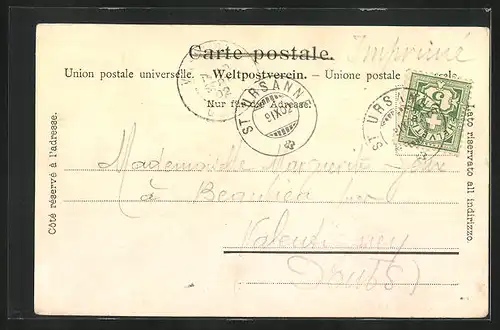 Carte postale.
Imprimé
Union postale universelle. – Weltpostverein. – Unione postale
Nur für die Adresse.
ST URSANNE
9 IX 02
ST URS
Côté réservé à l'adresse.
Lato riservato all indirizzo.
Mademoiselle Marguerite
à Beaulieu
Valentigney
Doubs)